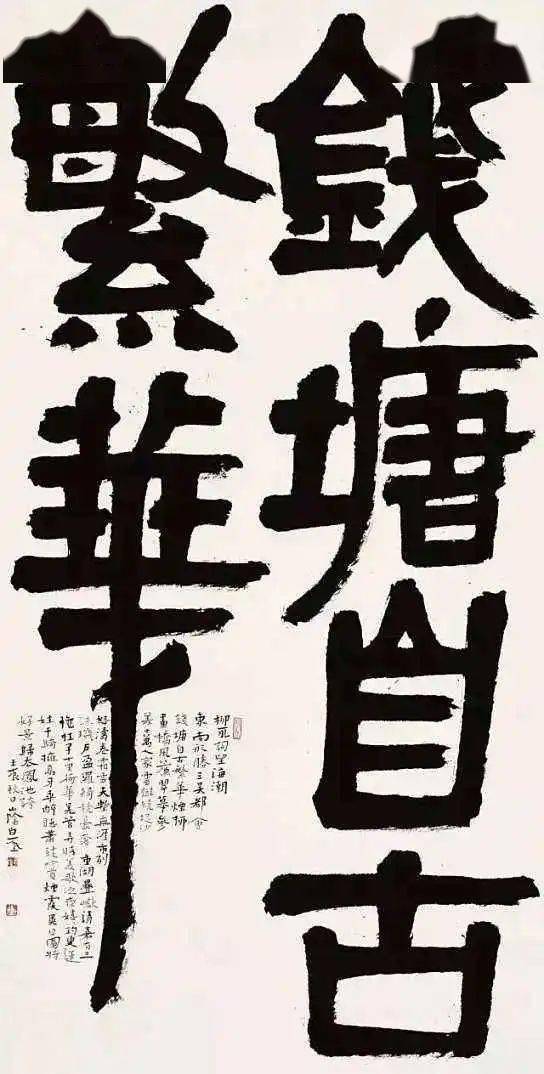 錢塘自古
繁華
柳永词望海潮
東南形勝三吴都會
錢塘自古繁華煙柳
畫橋風簾翠幕參
差十萬人家雲樹繞堤沙
怒濤卷霜雪天塹無涯市列
珠璣户盈羅綺競豪奢重湖疊巘清嘉有三
秋桂子十里荷華羌管弄晴菱歌泛夜嬉嬉釣叟蓮
娃千騎擁高牙乘醉聽簫鼓吟賞煙霞異日圖將
好景歸去鳳池誇
壬辰秋日山陰白